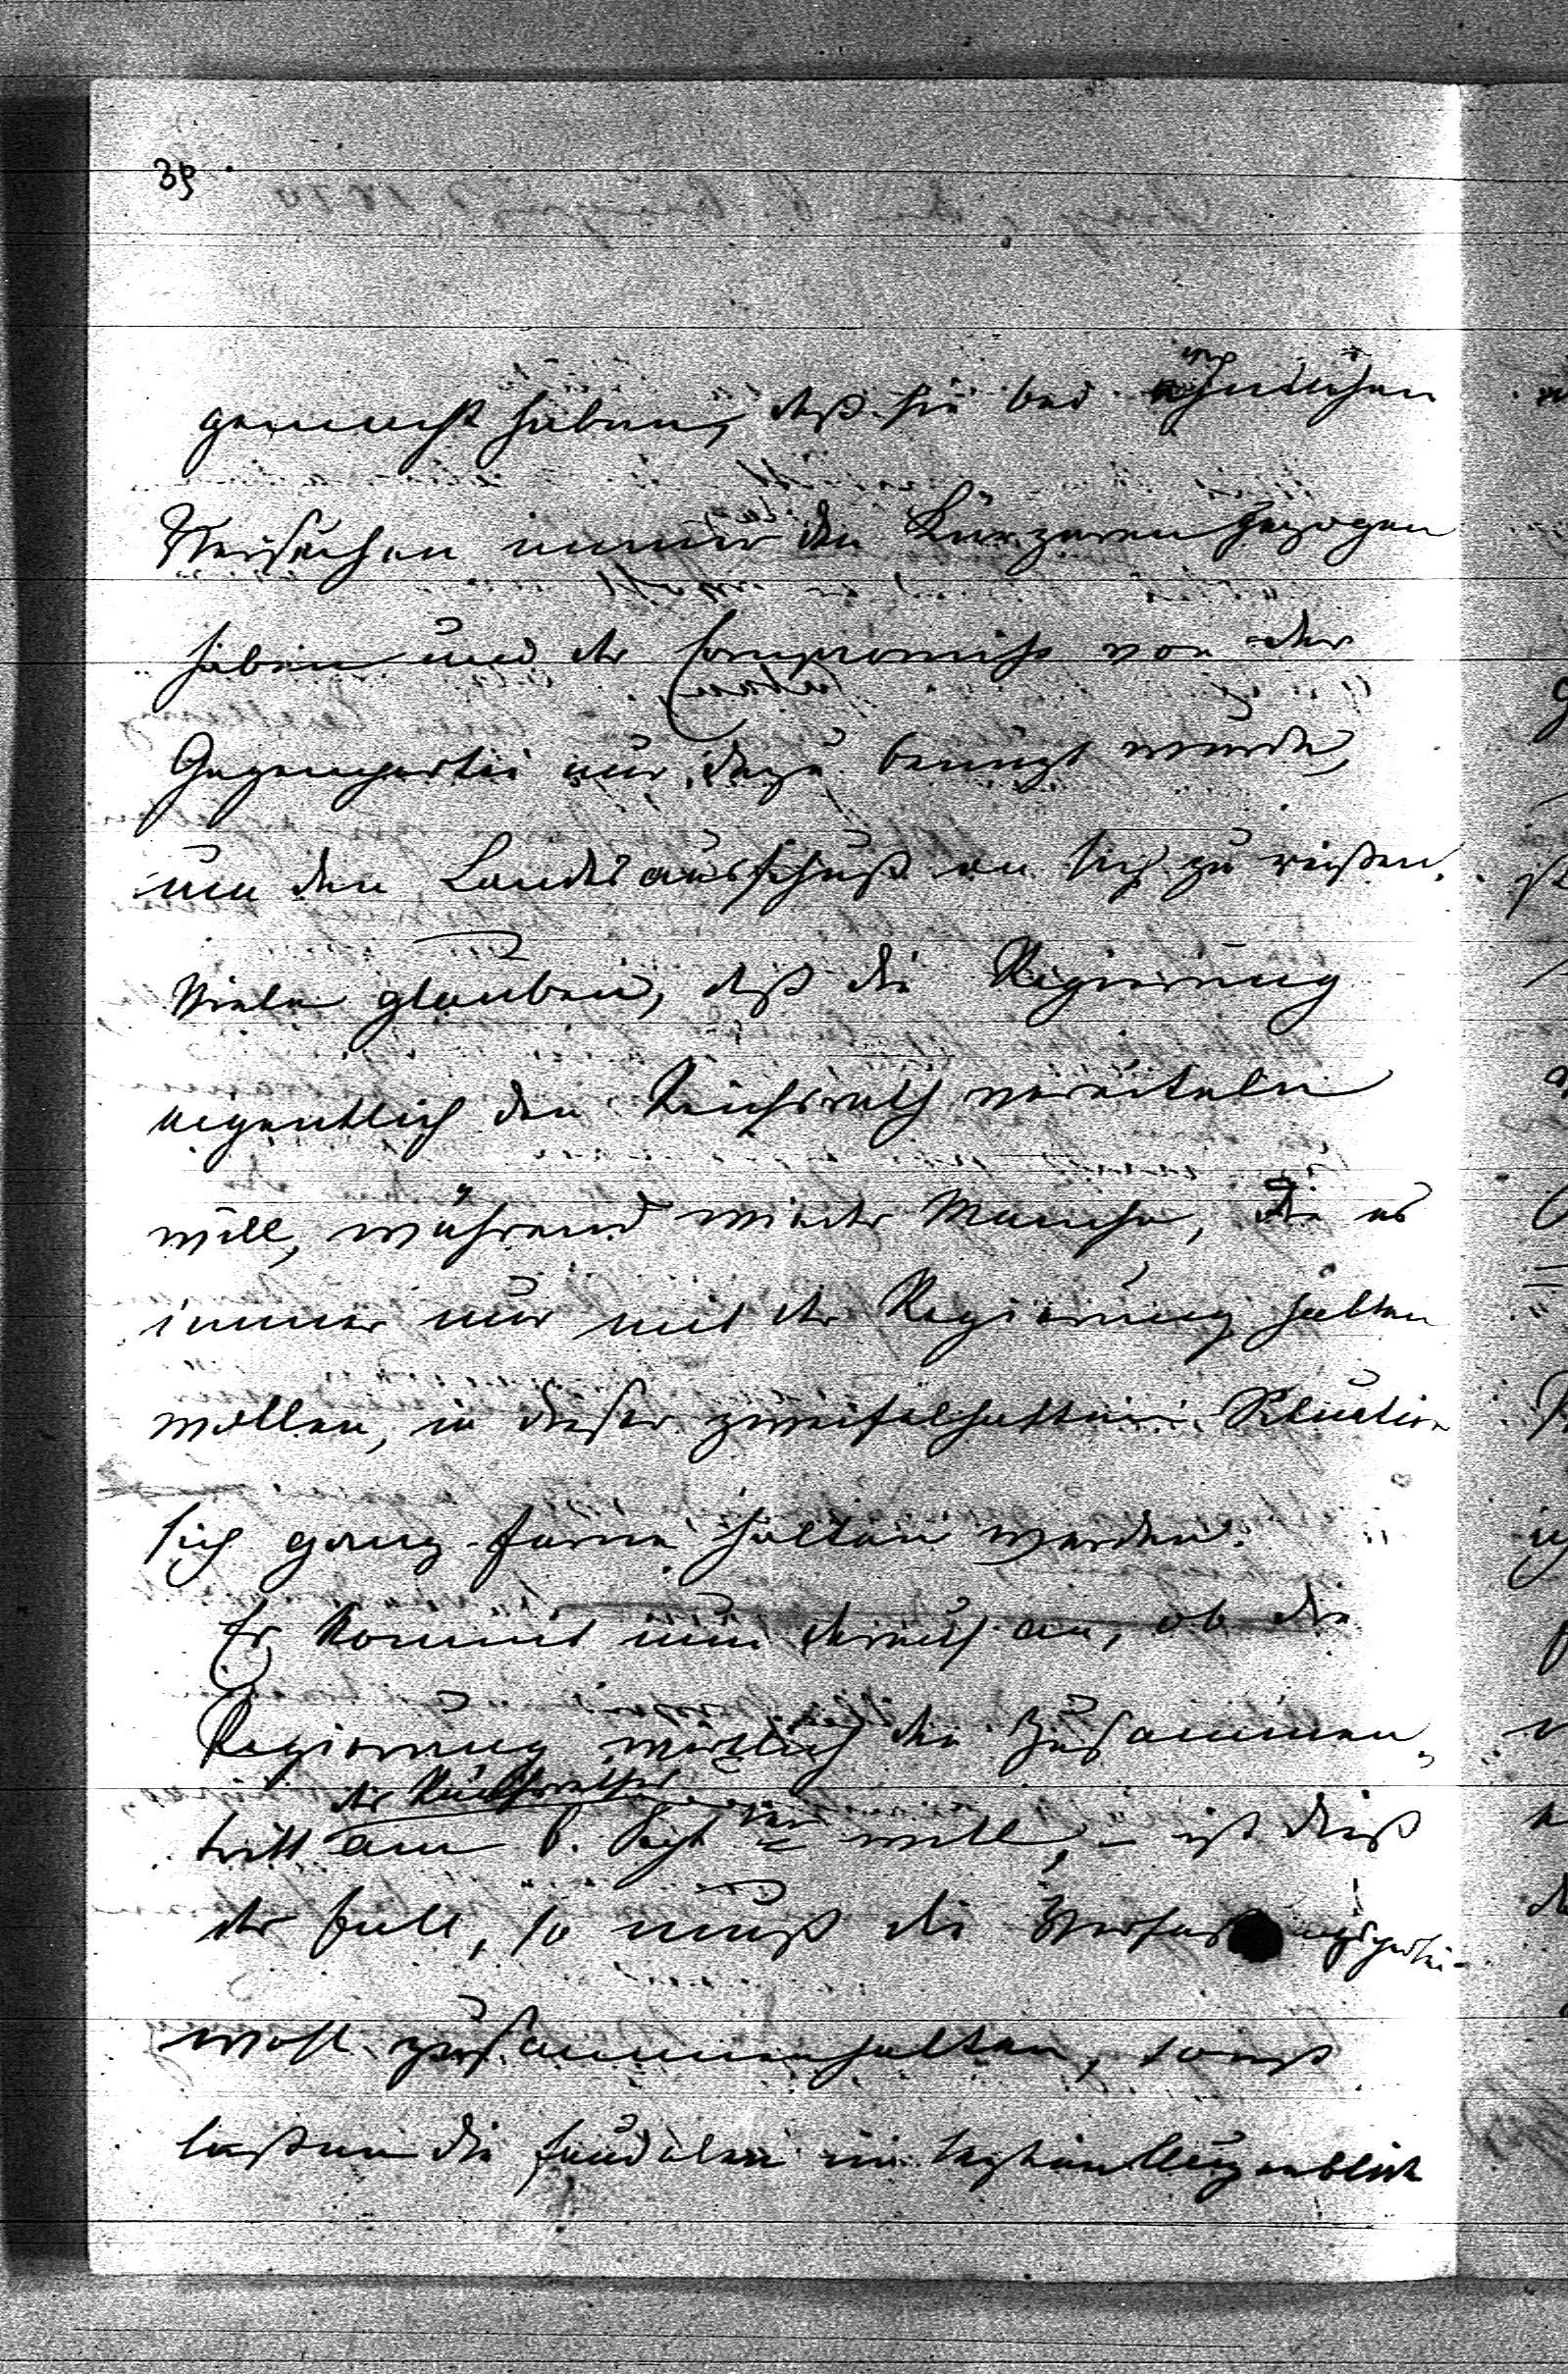 39.
gemacht haben, daß sie bei ähnlichen
Versuchen immer den Kürzeren gezogen
haben und der Compromiß von der
Gegenpartei nur dazu benützt wurde,
um den Landesausschuß an sich zu reißen.
Viele glauben, daß die Regierung
eigentlich den Reichsrath vereiteln
will, während wieder Manche, die es
immer nur mit der Regierung halten
wollen, in dieser zweifelhaften Situation
sich ganz ferne halten werden.
Es kommt nun darauf an, ob die
Regierung wirklich den Zusammen-
der Reichsrathes
tritt am 6. Sept will, – ist dieß
der Fall, so muß die Verfassungspartei
wohl zusammenhalten, sonst
lassen die Feudalen im letzten Augenblick